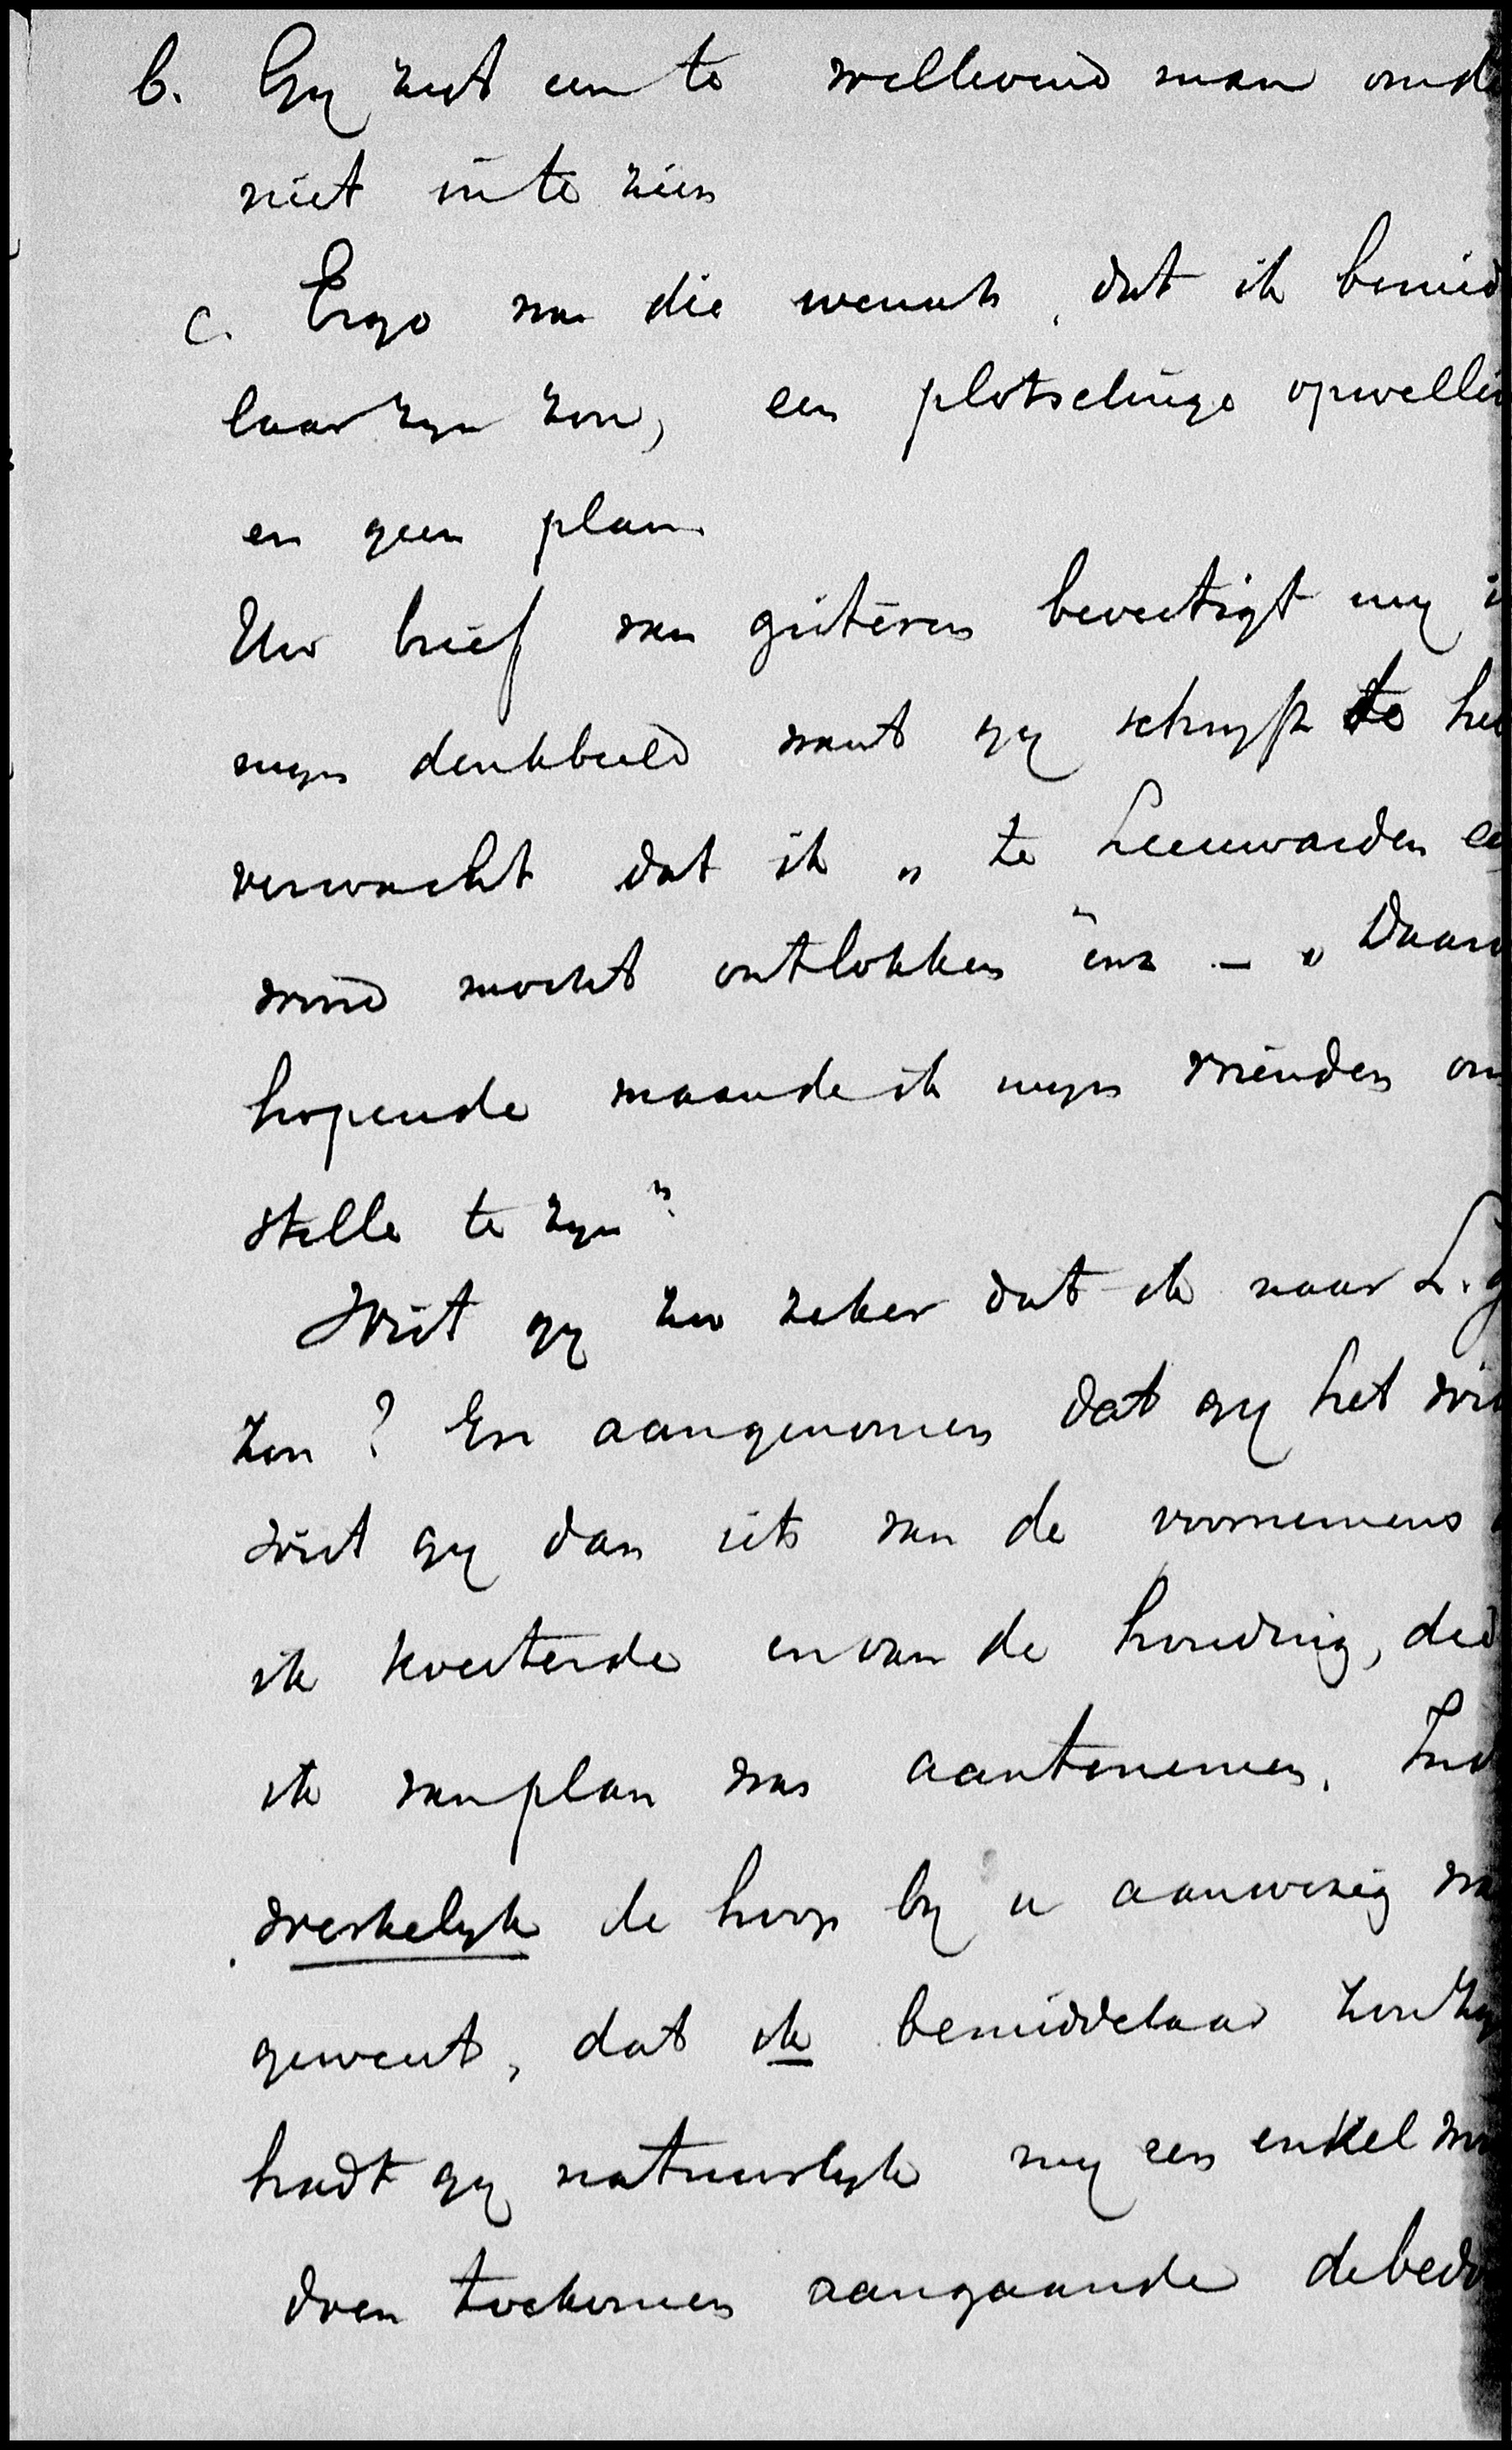 b. Gy zyt een te wellevend man om d
niet in te zien
c. Ergo was die wensch, dat ik bemid
laar zyn zou, een plotselinge opwellin
en geen plan.
Uw brief van gisteren bevestigt my i
myn denkbeeld want gy schryft te he
verwacht dat ik „te Leeuwarden ee
wind mocht ontlokken" enz - „Daaro
hopende maande ik myn vrienden om
stille te zyn".
Wist gy zoo zeker dat ik naar L. g
zou? En aangenomen dat gy het wis
wist gy dan iets van de voornemens
ik koesterde en van de houding, die
ik van plan was aantenemen. Ind
werkelyk de hoop by u aanwezig wa
geweest, dat ik bemiddelaar zou zy
hadt gy natuurlyk my een enkel wo
doen toekomen aangaande de bedo